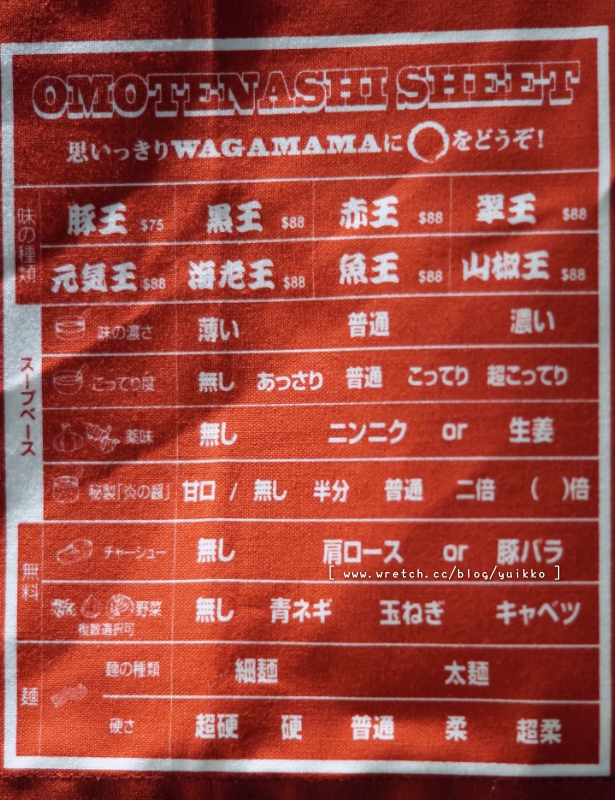 OMOTENASHI SHEET
思いっきりWAGAMAMAに○をどうぞ!
味の種類
豚王 $75 黒王 $88 赤王 $88 翠王 $88
元気王 $88 海老王 $88 魚王 $88 山椒王 $88
スープベース
味の濃さ 薄い 普通 濃い
こってり度 無し あっさり 普通 こってり 超こってり
薬味 無し ニンニク or 生姜
秘製「炎の醤」 甘口 / 無し 半分 普通 二倍 ( )倍
無料
チャーシュー 無し 肩ロース or 豚バラ
[ www.wretch.cc/blog/yuikko ]
野菜 複数選択可 無し 青ネギ 玉ねぎ キャベツ
麺
麺の種類 細麺 太麺
硬さ 超硬 硬 普通 柔 超柔